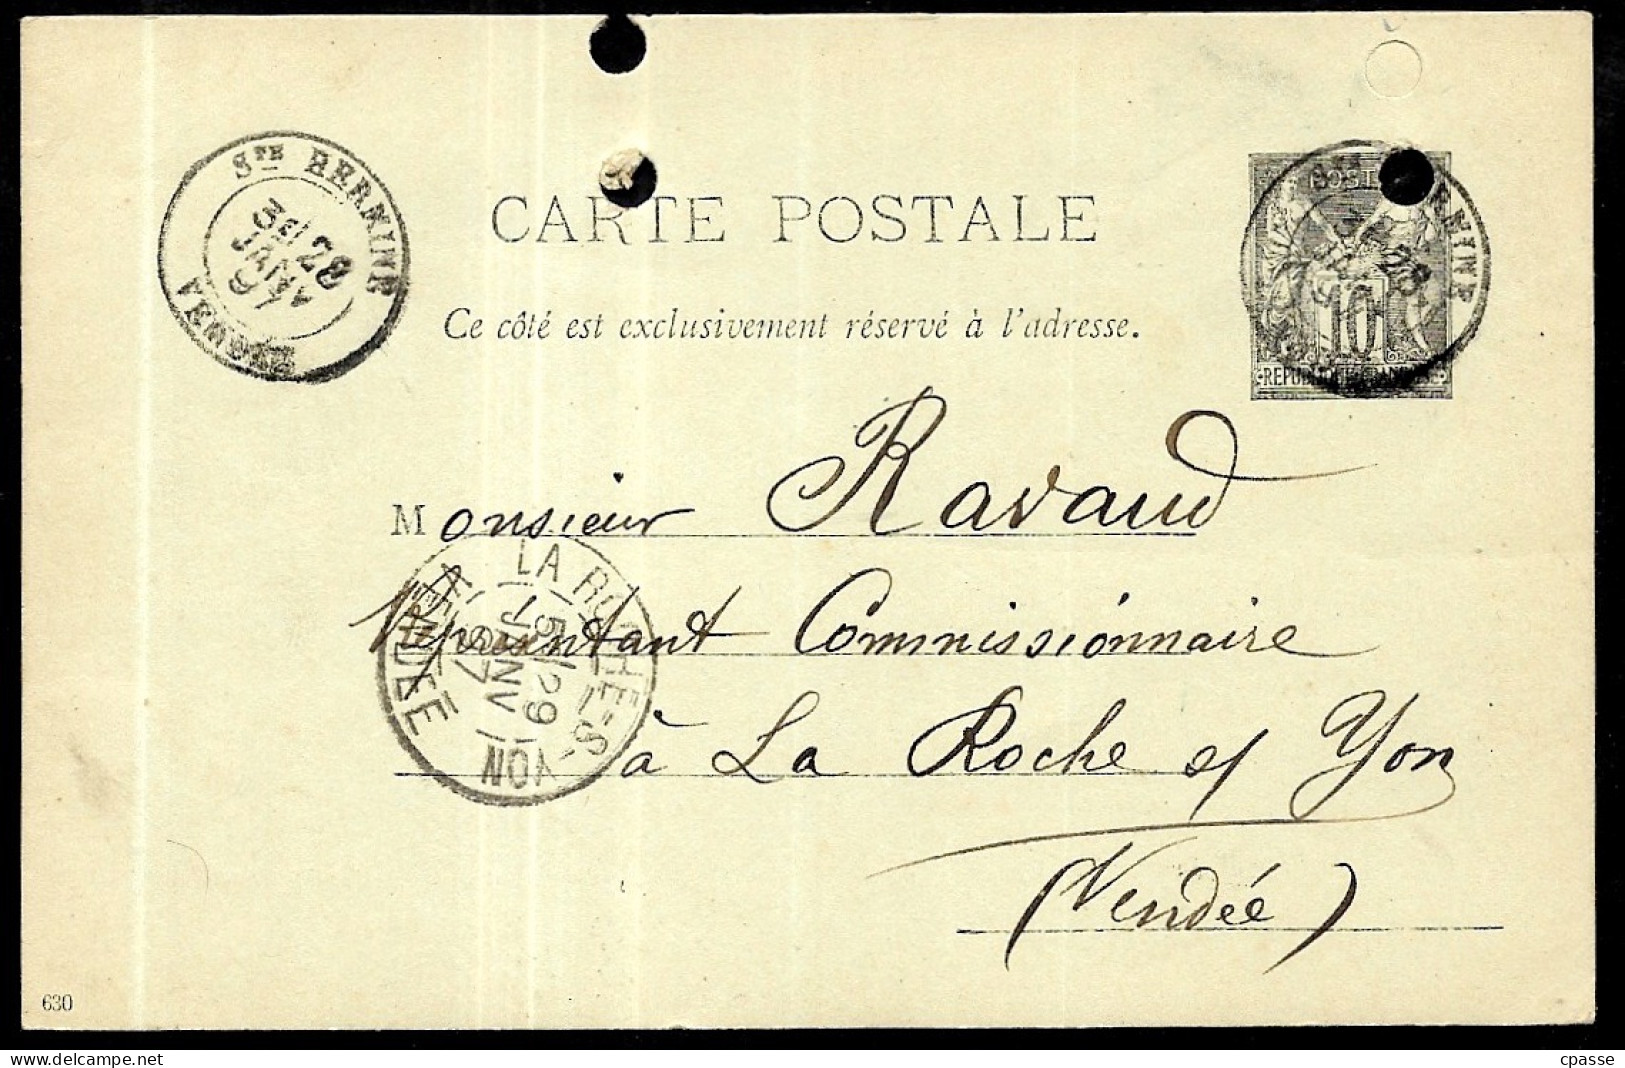 CARTE POSTALE
Ce côté est exclusivement réservé à l'adresse.
STE HERMINE
3E / 28
JANV
97
VENDÉE
POSTES
10
REPUBLIQUE FRANCAISE
STE HERMINE
28
Monsieur Ravaud
Représentant Commissionnaire
à La Roche s/ Yon
(Vendée)
LA ROCHE-S-YON
5E / 29
JANV
97
VENDÉE
630
delcampe.net
cpasse